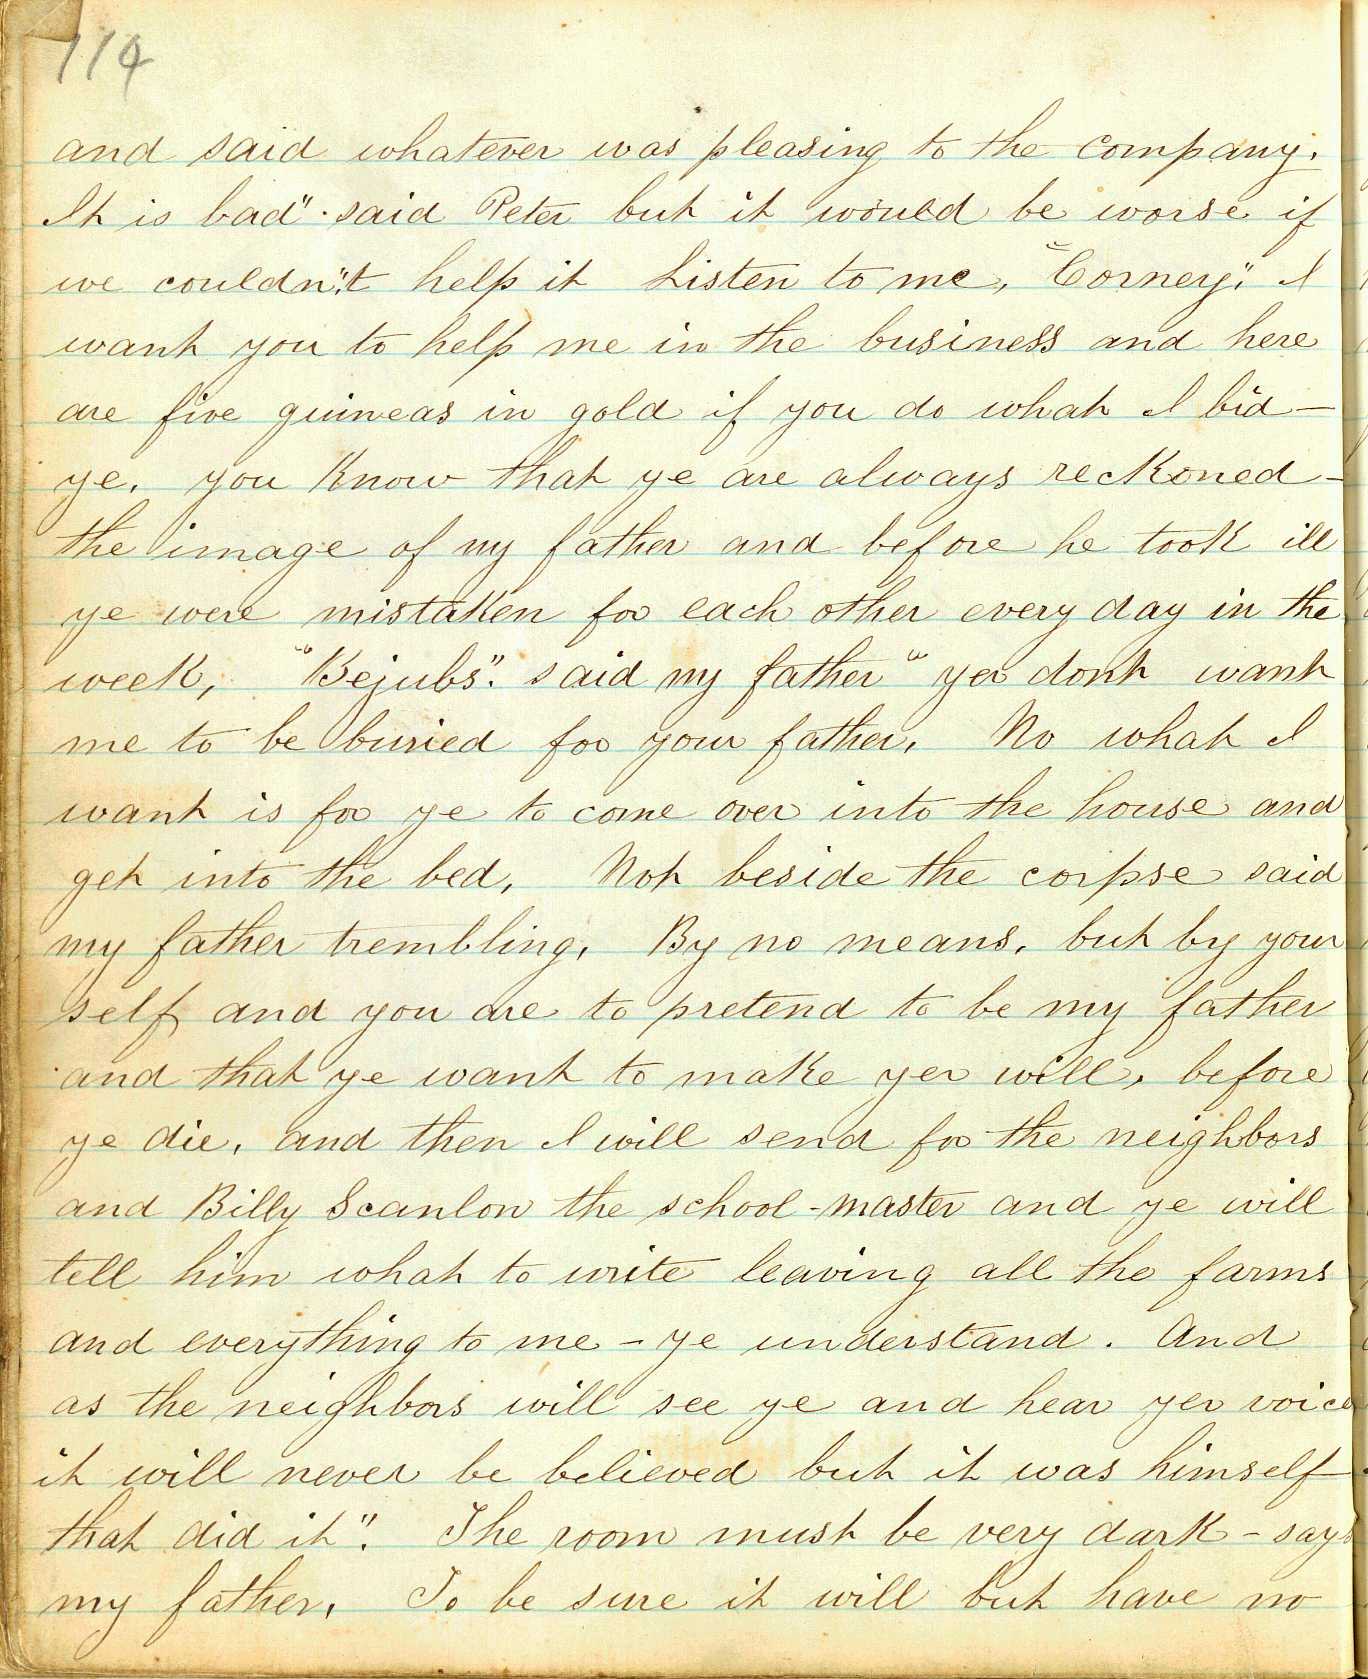 114
and said whatever was pleasing to the company.
It is bad" said Peter but it would be worse if
we couldn't help it Listen to me, "Corney", I
want you to help me in the business and here
are five guineas in gold if you do what I bid—
ye. you know that ye are always reckoned—
the image of my father and before he took ill
ye were mistaken for each other every day in the
week, "Bejubs". said my father "yer dont want
me to be buried for your father. No what I
want is for ye to come over into the house and
get into the bed, Not beside the corpse said
my father trembling, By no means, but by your
self and you are to pretend to be my father
and that ye want to make yer will, before
ye die, and then I will send for the neighbors
and Billy Scanlon the school-master and ye will
tell him what to write leaving all the farms
and everything to me – ye understand. And
as the neighbors will see ye and hear yer voice
it will never be believed but it was himself—
that did it". The room must be very dark – says
my father, To be sure it will but have no